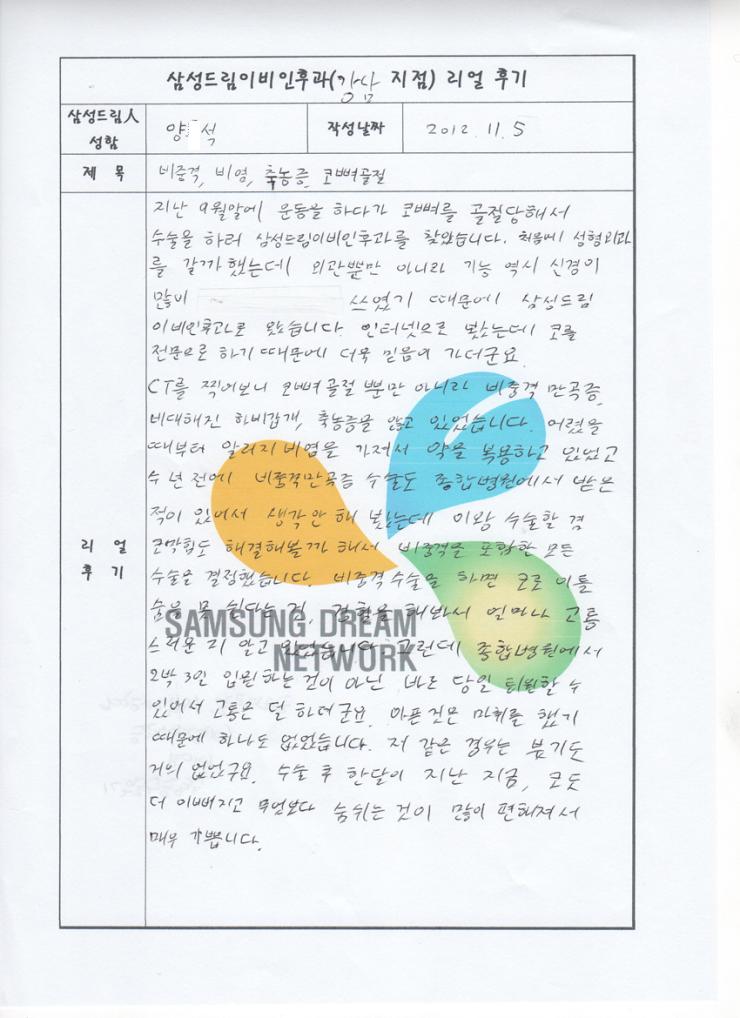 삼성드림이비인후과(강남 지점) 리얼 후기
삼성드림人
성함
양 석
작성날짜
2012. 11. 5
제 목
비중격, 비염, 축농증, 코뼈골절
지난 9월말에 운동을 하다가 코뼈를 골절당해서
수술을 하러 삼성드림이비인후과를 찾았습니다. 처음에 성형외과
를 갈까 했는데 외관뿐만 아니라 기능 역시 신경이
많이 쓰였기 때문에 삼성드림
이비인후과로 왔습니다. 인터넷으로 봤는데 코를
전문으로 하기 때문에 더욱 믿음이 가더군요.
CT를 찍어보니 코뼈골절 뿐만 아니라 비중격 만곡증,
비대해진 하비갑개, 축농증을 앓고 있었습니다. 어렸을
때부터 알러지 비염을 가져서 약을 복용하고 있었고
수 년 전에 비중격만곡증 수술도 종합병원에서 받은
적이 있어서 생각 안 해 봤는데 이왕 수술할 겸
코막힘도 해결해볼까 해서 비중격을 포함한 모든
수술을 결정했습니다. 비중격수술을 하면 코로 이틀
숨을 못 쉰다는 것, 경험을 해봐서 얼마나 고통
스러운 지 알고 있었습니다. 그런데 종합병원에서
2박 3일 입원하는 것이 아닌 바로 당일 퇴원할 수
있어서 고통은 덜 하더군요. 아픈 것은 마취를 했기
때문에 하나도 없었습니다. 저 같은 경우는 붓기도
거의 없었구요. 수술 후 한달이 지난 지금, 코도
더 이뻐지고 무엇보다 숨쉬는 것이 많이 편해져서
매우 기쁩니다.
리 얼
후 기
SAMSUNG DREAM
NETWORK